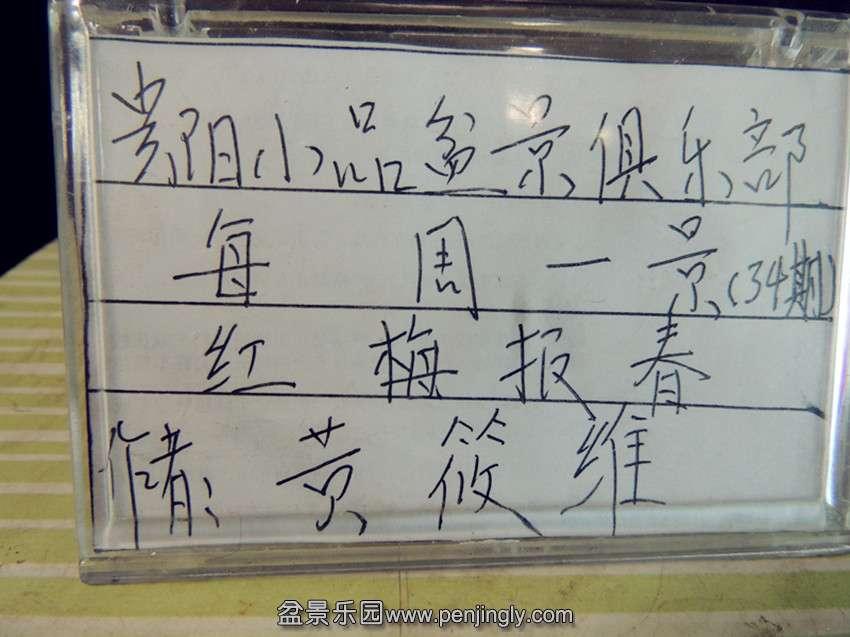 贵阳小品盆景俱乐部
每周一景(34期)
红梅报春
黄筱维
盆景乐园www.penjingly.com